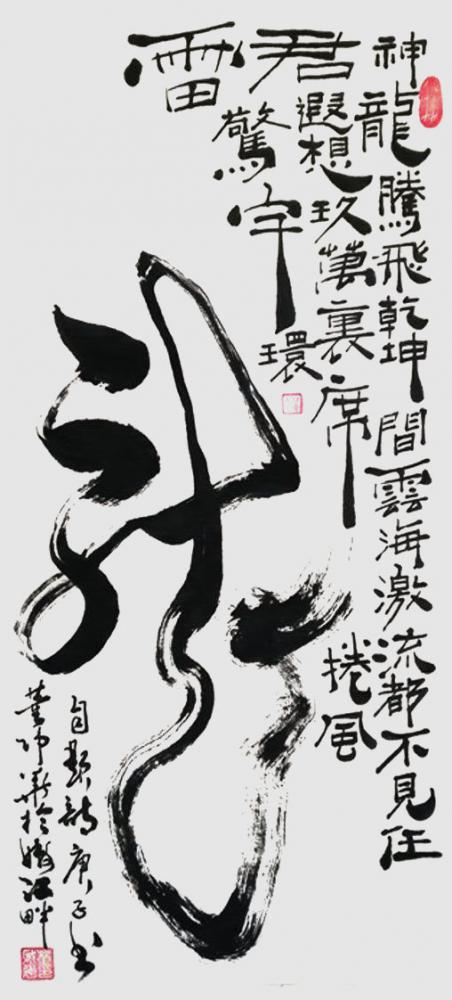 神龍騰飛乾坤間雲海激流都不見任
君遐想玖萬裏席捲風
雷驚宇環
龍
自題詩庚子书
董華於嫩江畔